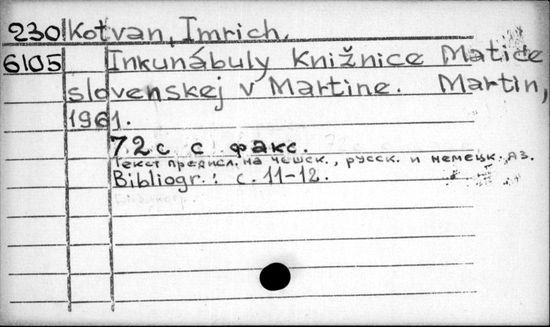 230 Kotvan, Imrich.
6105 Inkunábuly Knižnice Matice
slovenskej v Martine. Martin,
1961.
72 с с факс.
Текст предисл. на чешск., русск. и немецк. яз.
Bibliogr.: с. 11-12.